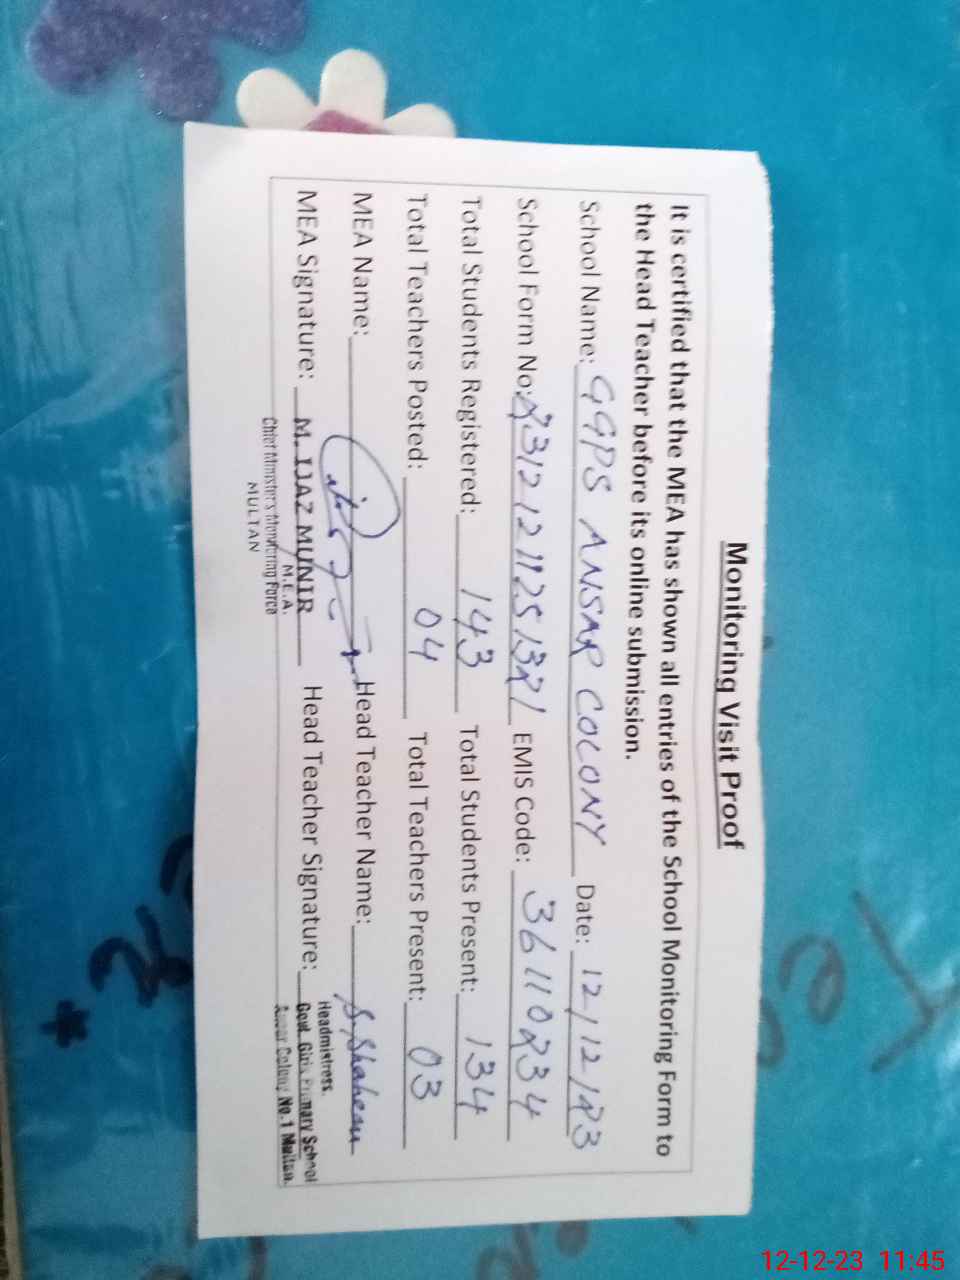 Monitoring Visit Proof
It is certified that the MEA has shown all entries of the School Monitoring Form to
the Head Teacher before its online submission.
School Name: GGPS ANSAR COLONY Date: 12/12/23
School Form No: 23121211251321 EMIS Code: 36110234
Total Students Registered: 143 Total Students Present: 134
Total Teachers Posted: 04 Total Teachers Present: 03
MEA Name: Head Teacher Name: S. Shaheen
MEA Signature: M. IJAZ MUNIR Head Teacher Signature:
M.E.A.
Chief Minister's Monitoring Force
MULTAN
Headmistress.
Govt. Girls Primary School
Ansar Colony No.1 Multan.
12-12-23 11:45